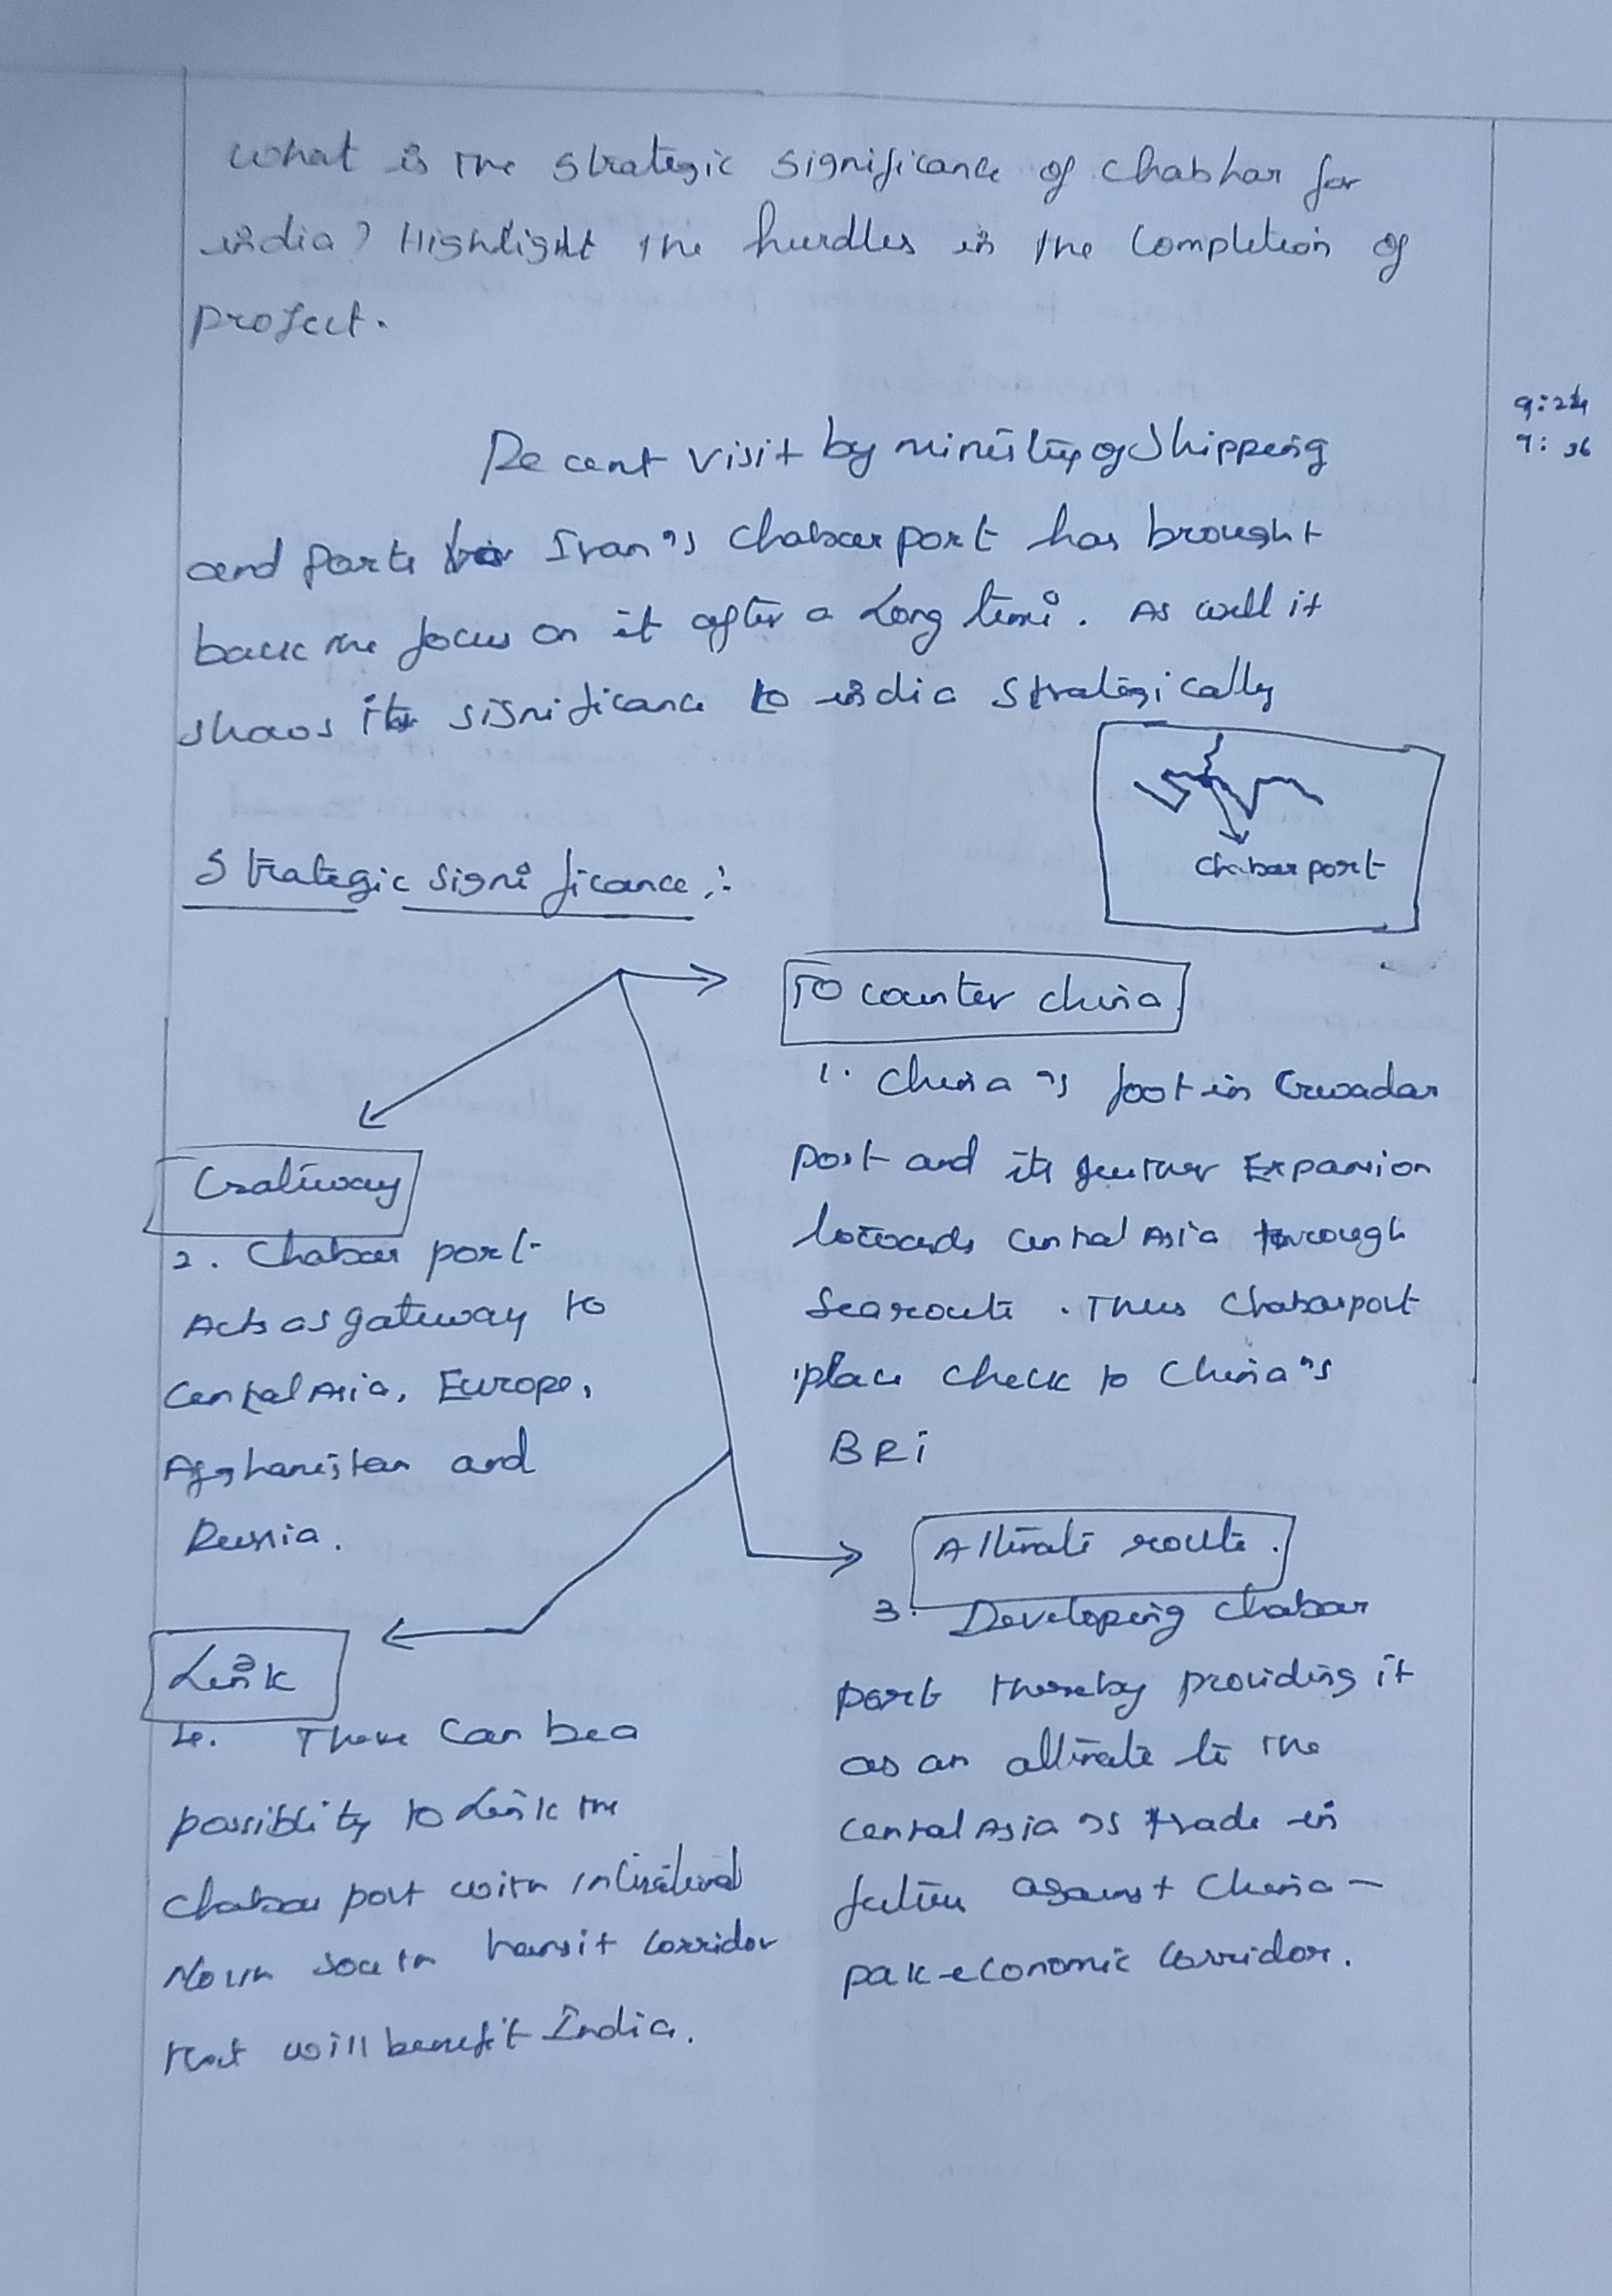 What is the strategic significance of Chabhar for
india? Highlight the hurdles in the completion of
project.
9:24
9:36
Recent visit by ministry of Shipping
and Ports Iran's Chabar port has brought
back the focus on it after a Long time. As well it
shows its significance to india Strategically
Chabar port
Strategic significance :-
To counter china
1. China's foot in Gwadar
port and its further Expansion
towards central Asia through
Searoute. Thus Chabar port
place check to China's
BRI
Gateway
2. Chabar port
Acts as gateway to
Central Asia, Europe,
Afghanistan and
Russia.
Alternate route.
3. Developing Chabar
port thereby providing it
as an alternate to the
central Asia's trade in
future against China-
pak-economic Corridor.
Link
4. There can be a
possiblity to Link the
Chabar port with
North south transit Corridor
that will benefit India.